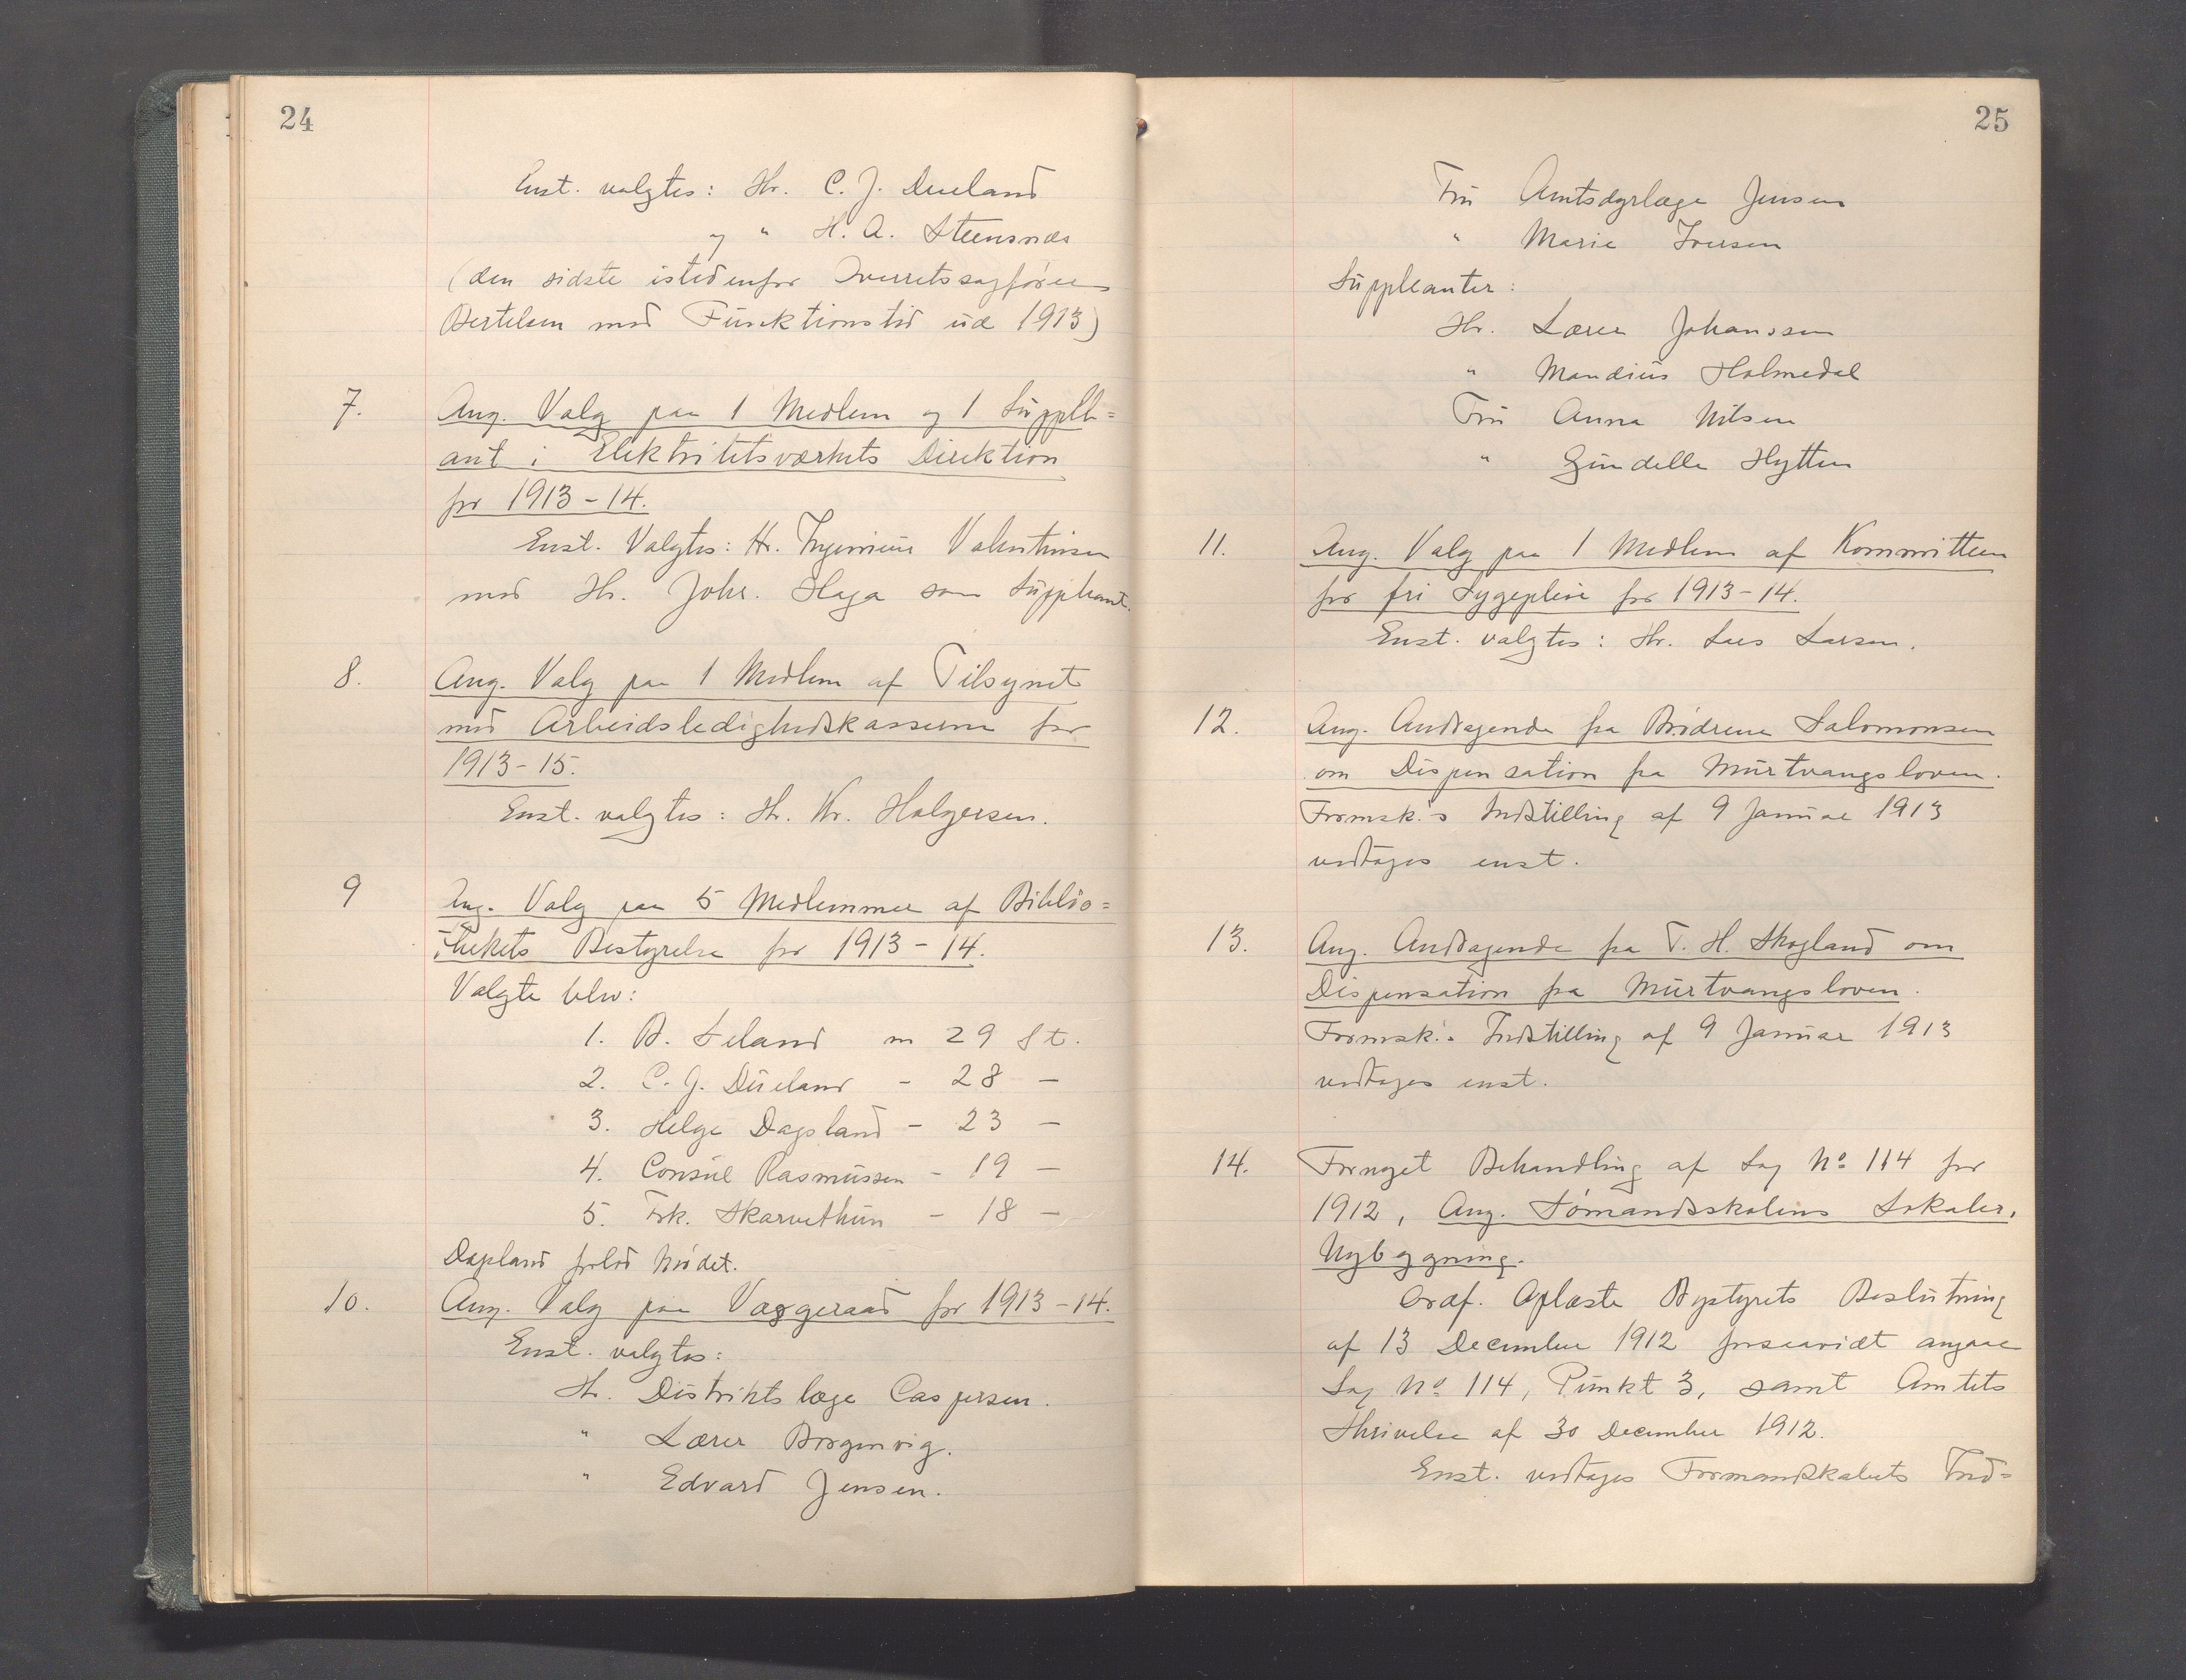 24
Enst. valgtes: Hr. C. J. Dueland
og " H. A. Steensnæs
(den sidste istedenfor Overretssagfører
Bertelsen med Funktionstid ud 1913)
7. Ang. Valg paa 1 Medlem og 1 Supple=
ant i Elektritetsværkets Direktion
for 1913-14.
Enst. Valgtes: Hr. Ingeniør Valentinsen
med Hr. Johs. Haga som Suppleant.
8. Ang. Valg paa 1 Medlem af Tilsynet
med Arbeidsledighedskasserne for
1913-15.
Enst. valgtes: Hr. Kr. Holgersen.
9 Ang. Valg paa 5 Medlemmer af Biblio=
thekets Bestyrelse for 1913-14.
Valgte blev:
1. B. Seland m 29 St.
2. C. J. Dueland - 28 -
3. Helge Dagsland - 23 -
4. Consul Rasmussen - 19 -
5. Frk. Skarvethun - 18 -
Dagsland forlod Mødet.
10. Ang. Valg paa Værgeraad for 1913-14.
Enst. valgtes:
Hr. Distriktslæge Caspersen.
" Lærer Borgenvig.
" Edvard Jensen.
25
Fru Amtsdyrlæge Jensen
" Marie Iversen
Suppleanter:
Hr. Lærer Johanssen
" Mandius Holmedal
Fru Anna Nilsen
" Gundelle Hytten
11. Ang. Valg paa 1 Medlem af Kommitteen
for fri Sygepleie for 1913-14.
Enst. valgtes: Hr. Lars Larsen.
12. Ang. Andragende fra Brødrene Salomonsen
om Dispensation fra Murtvangsloven.
Formsk.'s Indstilling af 9 Januar 1913
vedtages enst.
13. Ang. Andragende fra T. H. Skogland om
Dispensation fra Murtvangsloven.
Formsk.'s Indstilling af 9 Januar 1913
vedtages enst.
14. Fornyet Behandling af Sag No 114 for
1912, Ang. Sømandsskolens Lokaler,
Nybygning.
Ordf. Oplæste Bystyrets Beslutning
af 13 December 1912 forsaavidt angaar
Sag No 114, Punkt 3, samt Amtets
Skrivelse af 30 December 1912.
Enst. vedtages Formandskabets Ind=